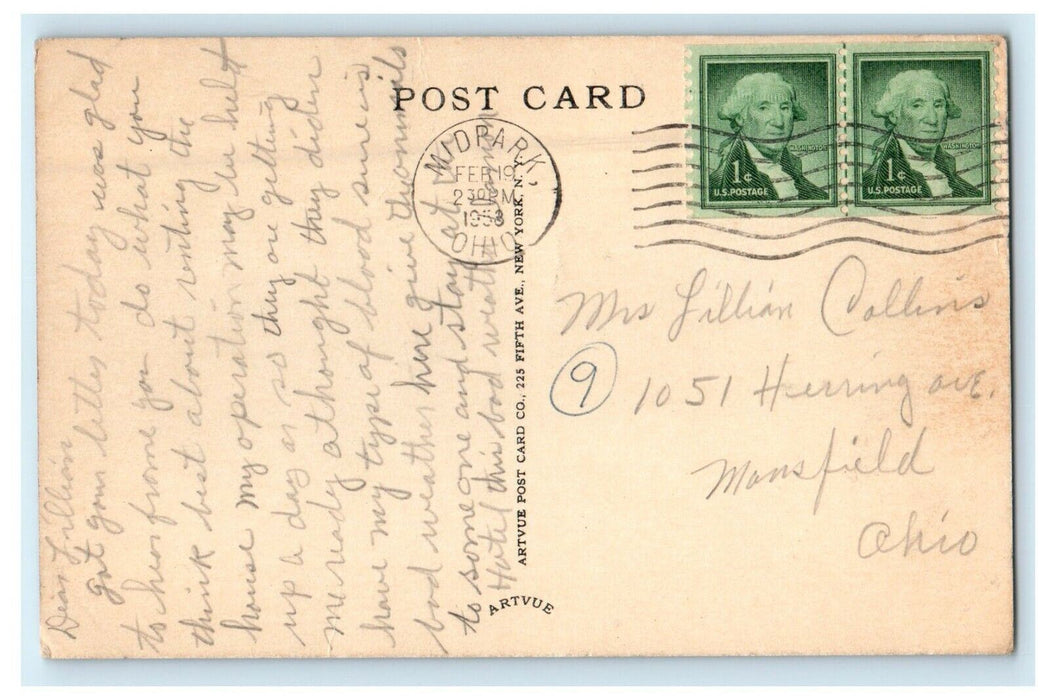 POST CARD
MIDPARK
FEB 19
230 PM
1958
OHIO
1¢
U.S. POSTAGE
WASHINGTON
1¢
U.S. POSTAGE
WASHINGTON
Dear Lillian
got your letter today was glad
to hear frome you do what you
think best about renting the
house my operation may be held
up a day or so they are getting
me ready athought they diden
have my type of blood sure is
bad weather here give the
to some one and stay at
Hotel this bad weather
ARTVUE POST CARD CO., 225 FIFTH AVE., NEW YORK, N.Y.
ARTVUE
Mrs Lillian Collins
9
1051 Herring ave.
Mansfield
Ohio